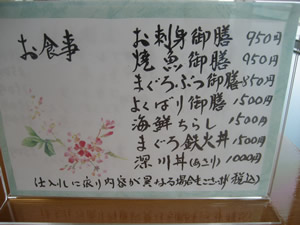 お食事
お刺身御膳 950円
焼魚御膳 950円
まぐろぶつ御膳 850円
よくばり御膳 1500円
海鮮ちらし 1500円
まぐろ鉄火丼 1500円
深川丼(あさり) 1000円
仕入れに依り内容が異なる場合もござい(税込)